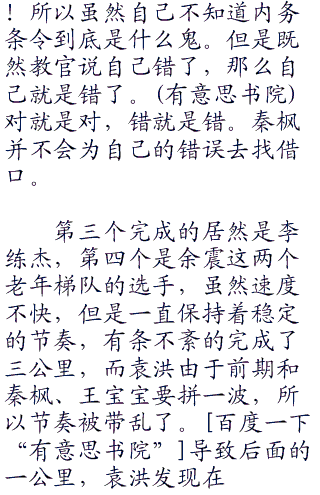 ！所以虽然自己不知道内务
条令到底是什么鬼。但是既
然教官说自己错了，那么自
己就是错了。(有意思书院)
对就是对，错就是错。秦枫
并不会为自己的错误去找借
口。
第三个完成的居然是李
练杰，第四个是余震这两个
老年梯队的选手，虽然速度
不快，但是一直保持着稳定
的节奏，有条不紊的完成了
三公里，而袁洪由于前期和
秦枫、王宝宝要拼一波，所
以节奏被带乱了。[百度一下
“有意思书院”]导致后面的
一公里，袁洪发现在